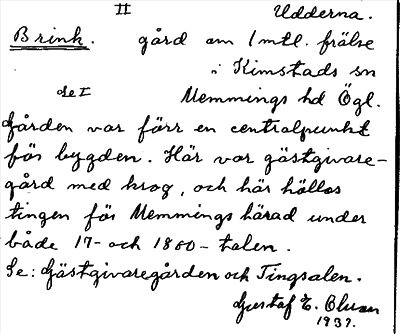 II Udderna.
Brink. gård om 1 mtl. frälse
i Kimstads sn
Se I Memmings hd Ögl.
Gården var förr en centralpunkt
för bygden. Här var gästgivare-
gård med krog, och här hölls
tingen för Memmings härad under
både 17- och 1800-talen.
Se: Gästgivaregården och Tingsalen.
Gustaf E. Olsson
1937.